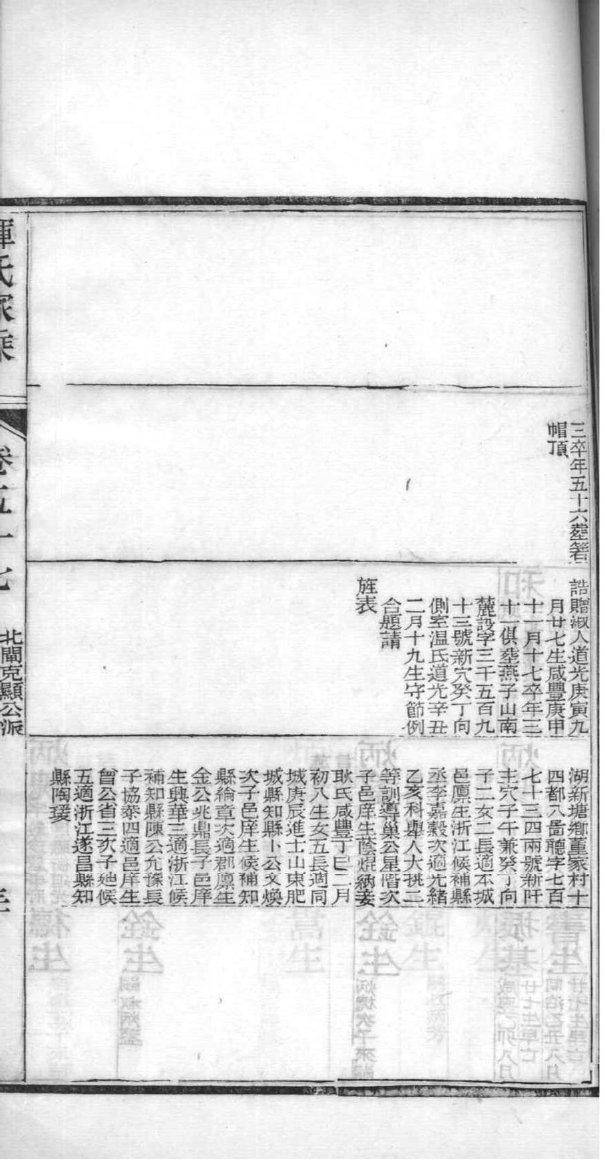 三卒年五十六葬箬
帽頂
誥贈淑人道光庚寅九
月廿七生咸豐庚申
十一月十七卒年三
十一俱葬燕子山南
麓設字三千五百九
十三號新穴癸丁向
側室温氏道光辛丑
二月十九生守節例
合題請
旌表
湖新塘鄉董家村十
四都八啚聽字七百
七十三四兩號新阡
主穴子午兼癸丁向
子二女二長適本城
邑廩生浙江候補縣
丞李嘉穀次適光緒
乙亥科舉人大挑二
等訓導巢公星階次
子邑庠生蔭焜納妾
耿氏咸豐丁巳二月
初八生女五長適同
城庚辰進士山東肥
城縣知縣卜公文煥
次子邑庠生候補知
縣綸章次適郡廩生
金公兆鼎長子邑庠
生興華三適浙江候
補知縣陳公允豫長
子協泰四適邑庠生
曾公省三次子廸候
五適浙江遂昌縣知
縣陶瑗
惲氏家乘
卷五十七
北門克顯公派